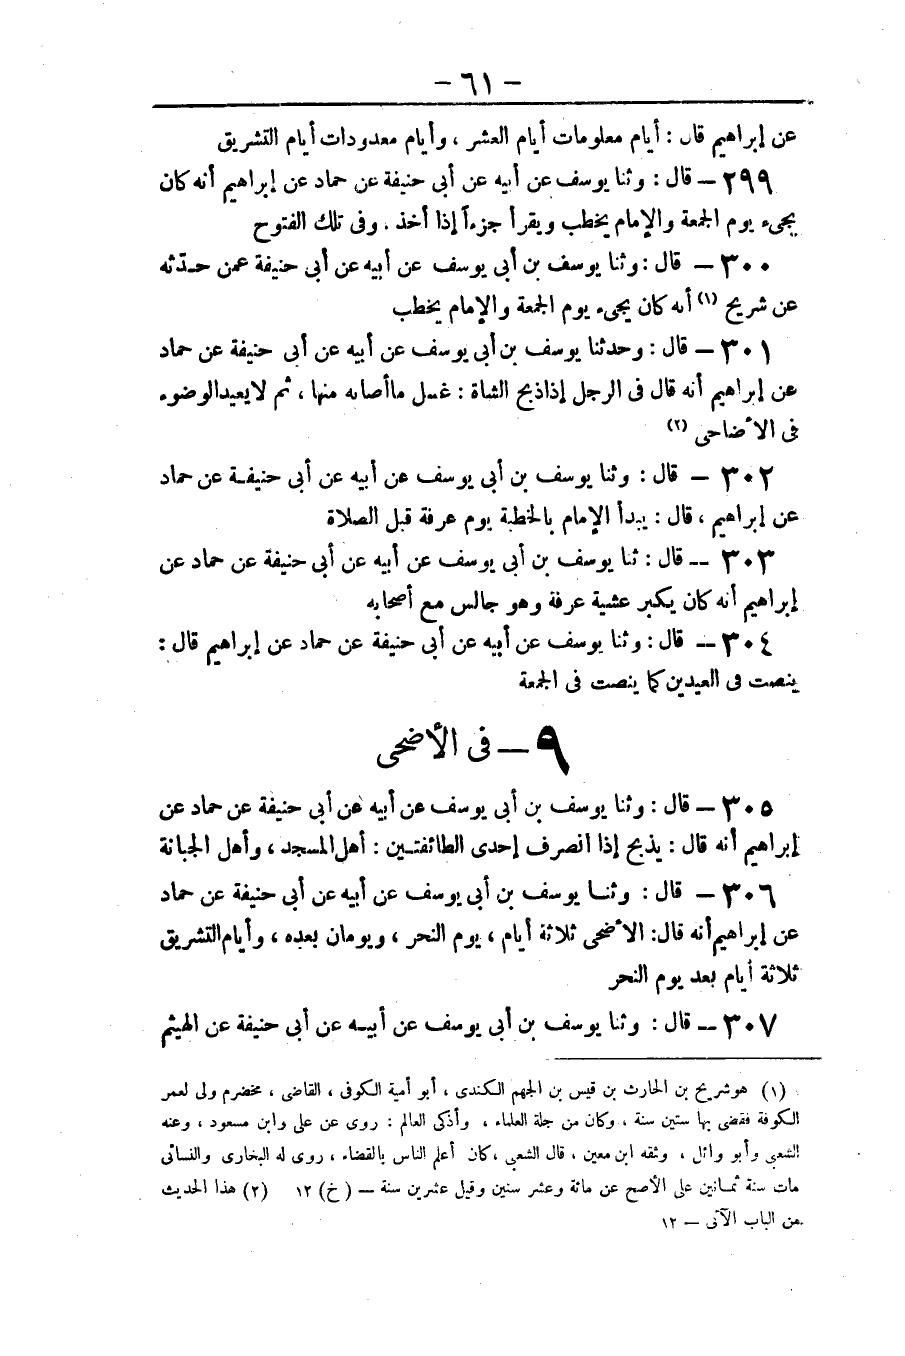 - ٦١ -
عن إبراهيم قال : أيام معلومات أيام العشر ، وأيام معدودات أيام التشريق
٢٩٩ – قال : وثنا يوسف عن أبيه عن أبى حنيفة عن حماد عن إبراهيم أنه كان
يجىء يوم الجمعة والإمام يخطب ويقرأ جزءاً إذا أخذ . وفى تلك الفتوح
٣٠٠ – قال : وثنا يوسف بن أبي يوسف عن أبيه عن أبى حنيفة عمن حدّثه
عن شريح (١) أنه كان يجىء يوم الجمعة والإمام يخطب
٣٠١ – قال : وحدثنا يوسف بن أبى يوسف عن أبيه عن أبى حنيفة عن حماد
عن إبراهيم أنه قال فى الرجل إذاذبح الشاة : غسل ماأصابه منها ، ثم لايعيدالوضوء
فى الأضاحى (٢)
٣٠٢ – قال : وثنا يوسف بن أبي يوسف عن أبيه عن أبى حنيفة عن حماد
عن إبراهيم ، قال : يبدأ الإمام بالخطبة يوم عرفة قبل الصلاة
٣٠٣ -- قال : ثنا يوسف بن أبى يوسف عن أبيه عن أبى حنيفة عن حماد عن
إبراهيم أنه كان يكبر عشية عرفة وهو جالس مع أصحابه
٣٠٤ -- قال : وثنا يوسف عن أبيه عن أبى حنيفة عن حماد عن إبراهيم قال :
ينصت فى العيدين كما ينصت فى الجمعة
٩ – فى الأضحى
٣٠٥ – قال : وثنا يوسف بن أبى يوسف عن أبيه عن أبى حنيفة عن حماد عن
إبراهيم أنه قال : يذبح إذا انصرف إحدى الطائفتين : أهل المسجد ، وأهل الجبانة
٣٠٦ – قال : وثنا يوسف بن أبى يوسف عن أبيه عن أبى حنيفة عن حماد
عن إبراهيم أنه قال: الأضحى ثلاثة أيام ، يوم النحر ، ويومان بعده ، وأيام التشريق
ثلاثة أيام بعد يوم النحر
٣٠٧ – قال : وثنا يوسف بن أبى يوسف عن أبيه عن أبى حنيفة عن الهيثم
(١) هوشريح بن الحارث بن قيس بن الجهم الكندى ، أبو أمية الكوفى ، القاضى ، مخضرم ولى لعمر
الكوفة فقضى بها ستين سنة ، وكان من جلة العلماء ، وأذكى العالم : روى عن على وابن مسعود ، وعنه
الشعبى وأبو وائل ، وثقه ابن معين ، قال الشعبى ،كان أعلم الناس بالقضاء ، روى له البخارى والنسائى
مات سنة ثمانين على الأصح عن مائة وعشر سنين وقيل عشرين سنة – (خ) ١٢ (٢) هذا الحديث
من الباب الآتى – ١٢